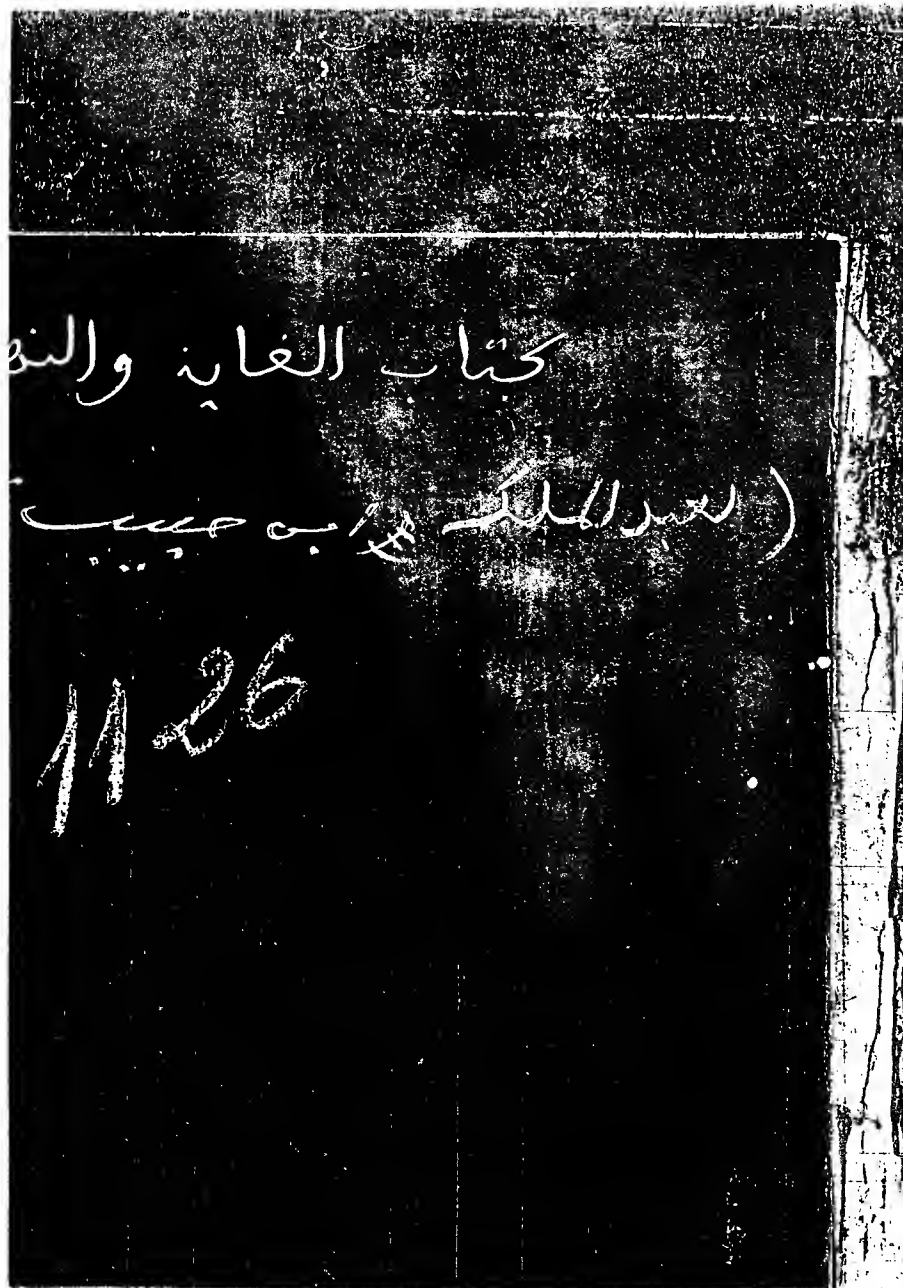 كتاب الغاية والنه
(لعبد الملك ابن حبيب
1126